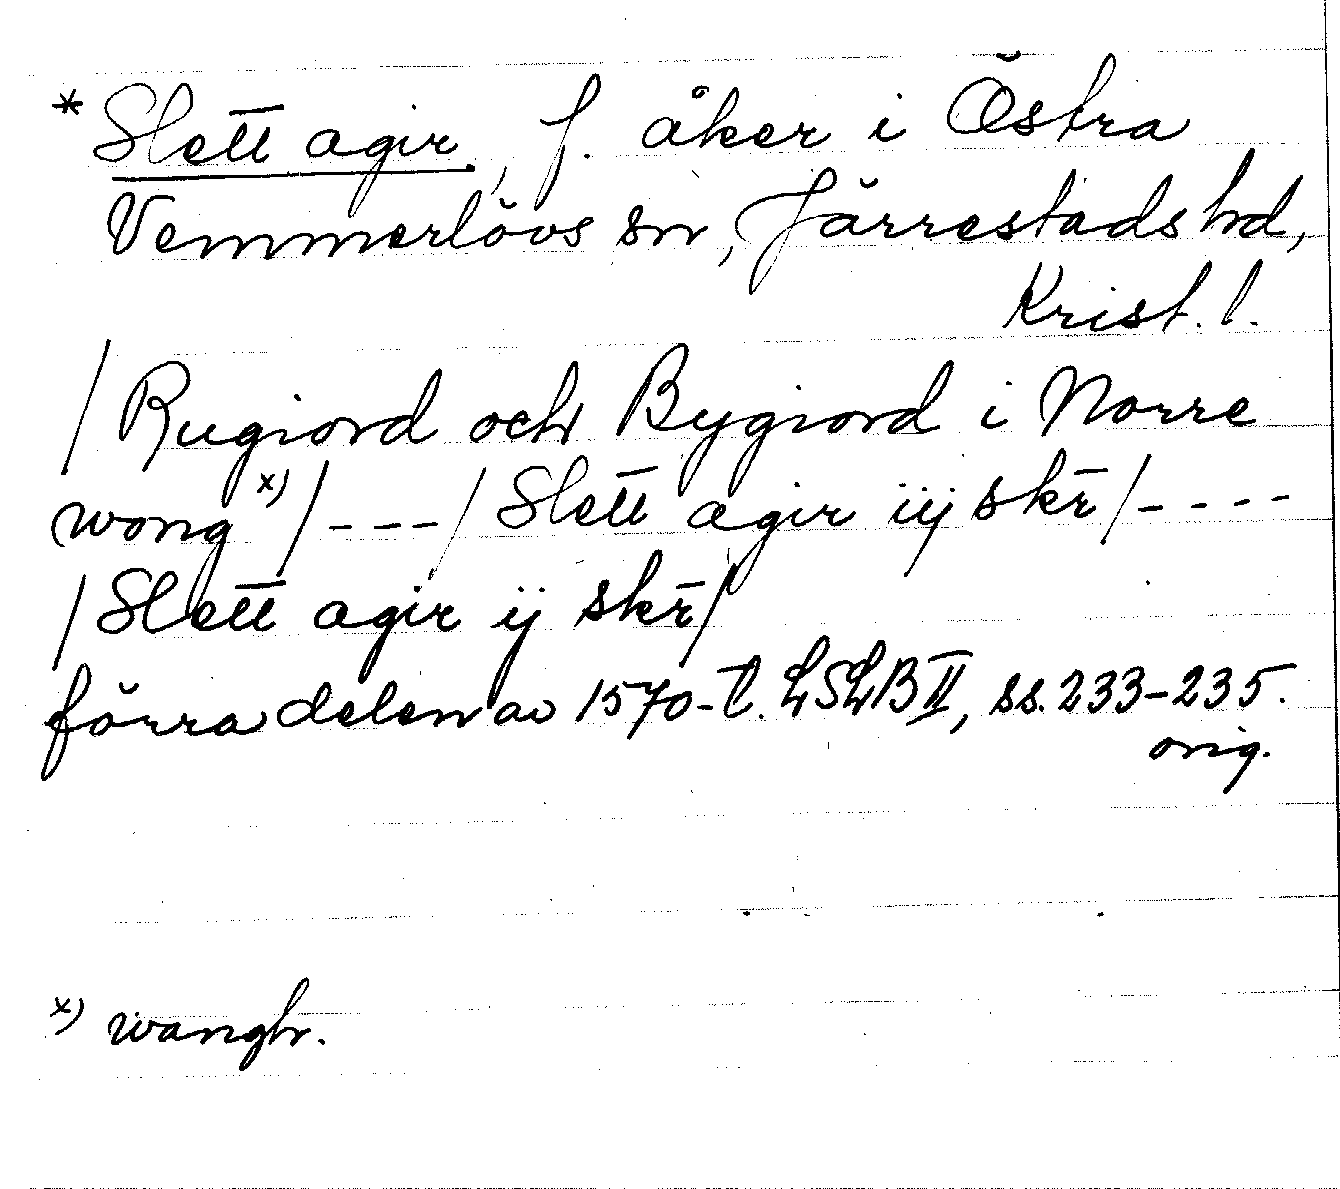 * Slett agir, f. åker i Östra
Vemmerlövs sn, Järrestads hd,
Krist. l.
/ Rugiord och Bygiord i Norre
wong x) / - - - / Slett agir iij skr̄ / - - - -
/ Slett agir ij skr̄ /
förra delen av 1570-t. LSLB II, ss. 233-235.
orig.
x) wangh.